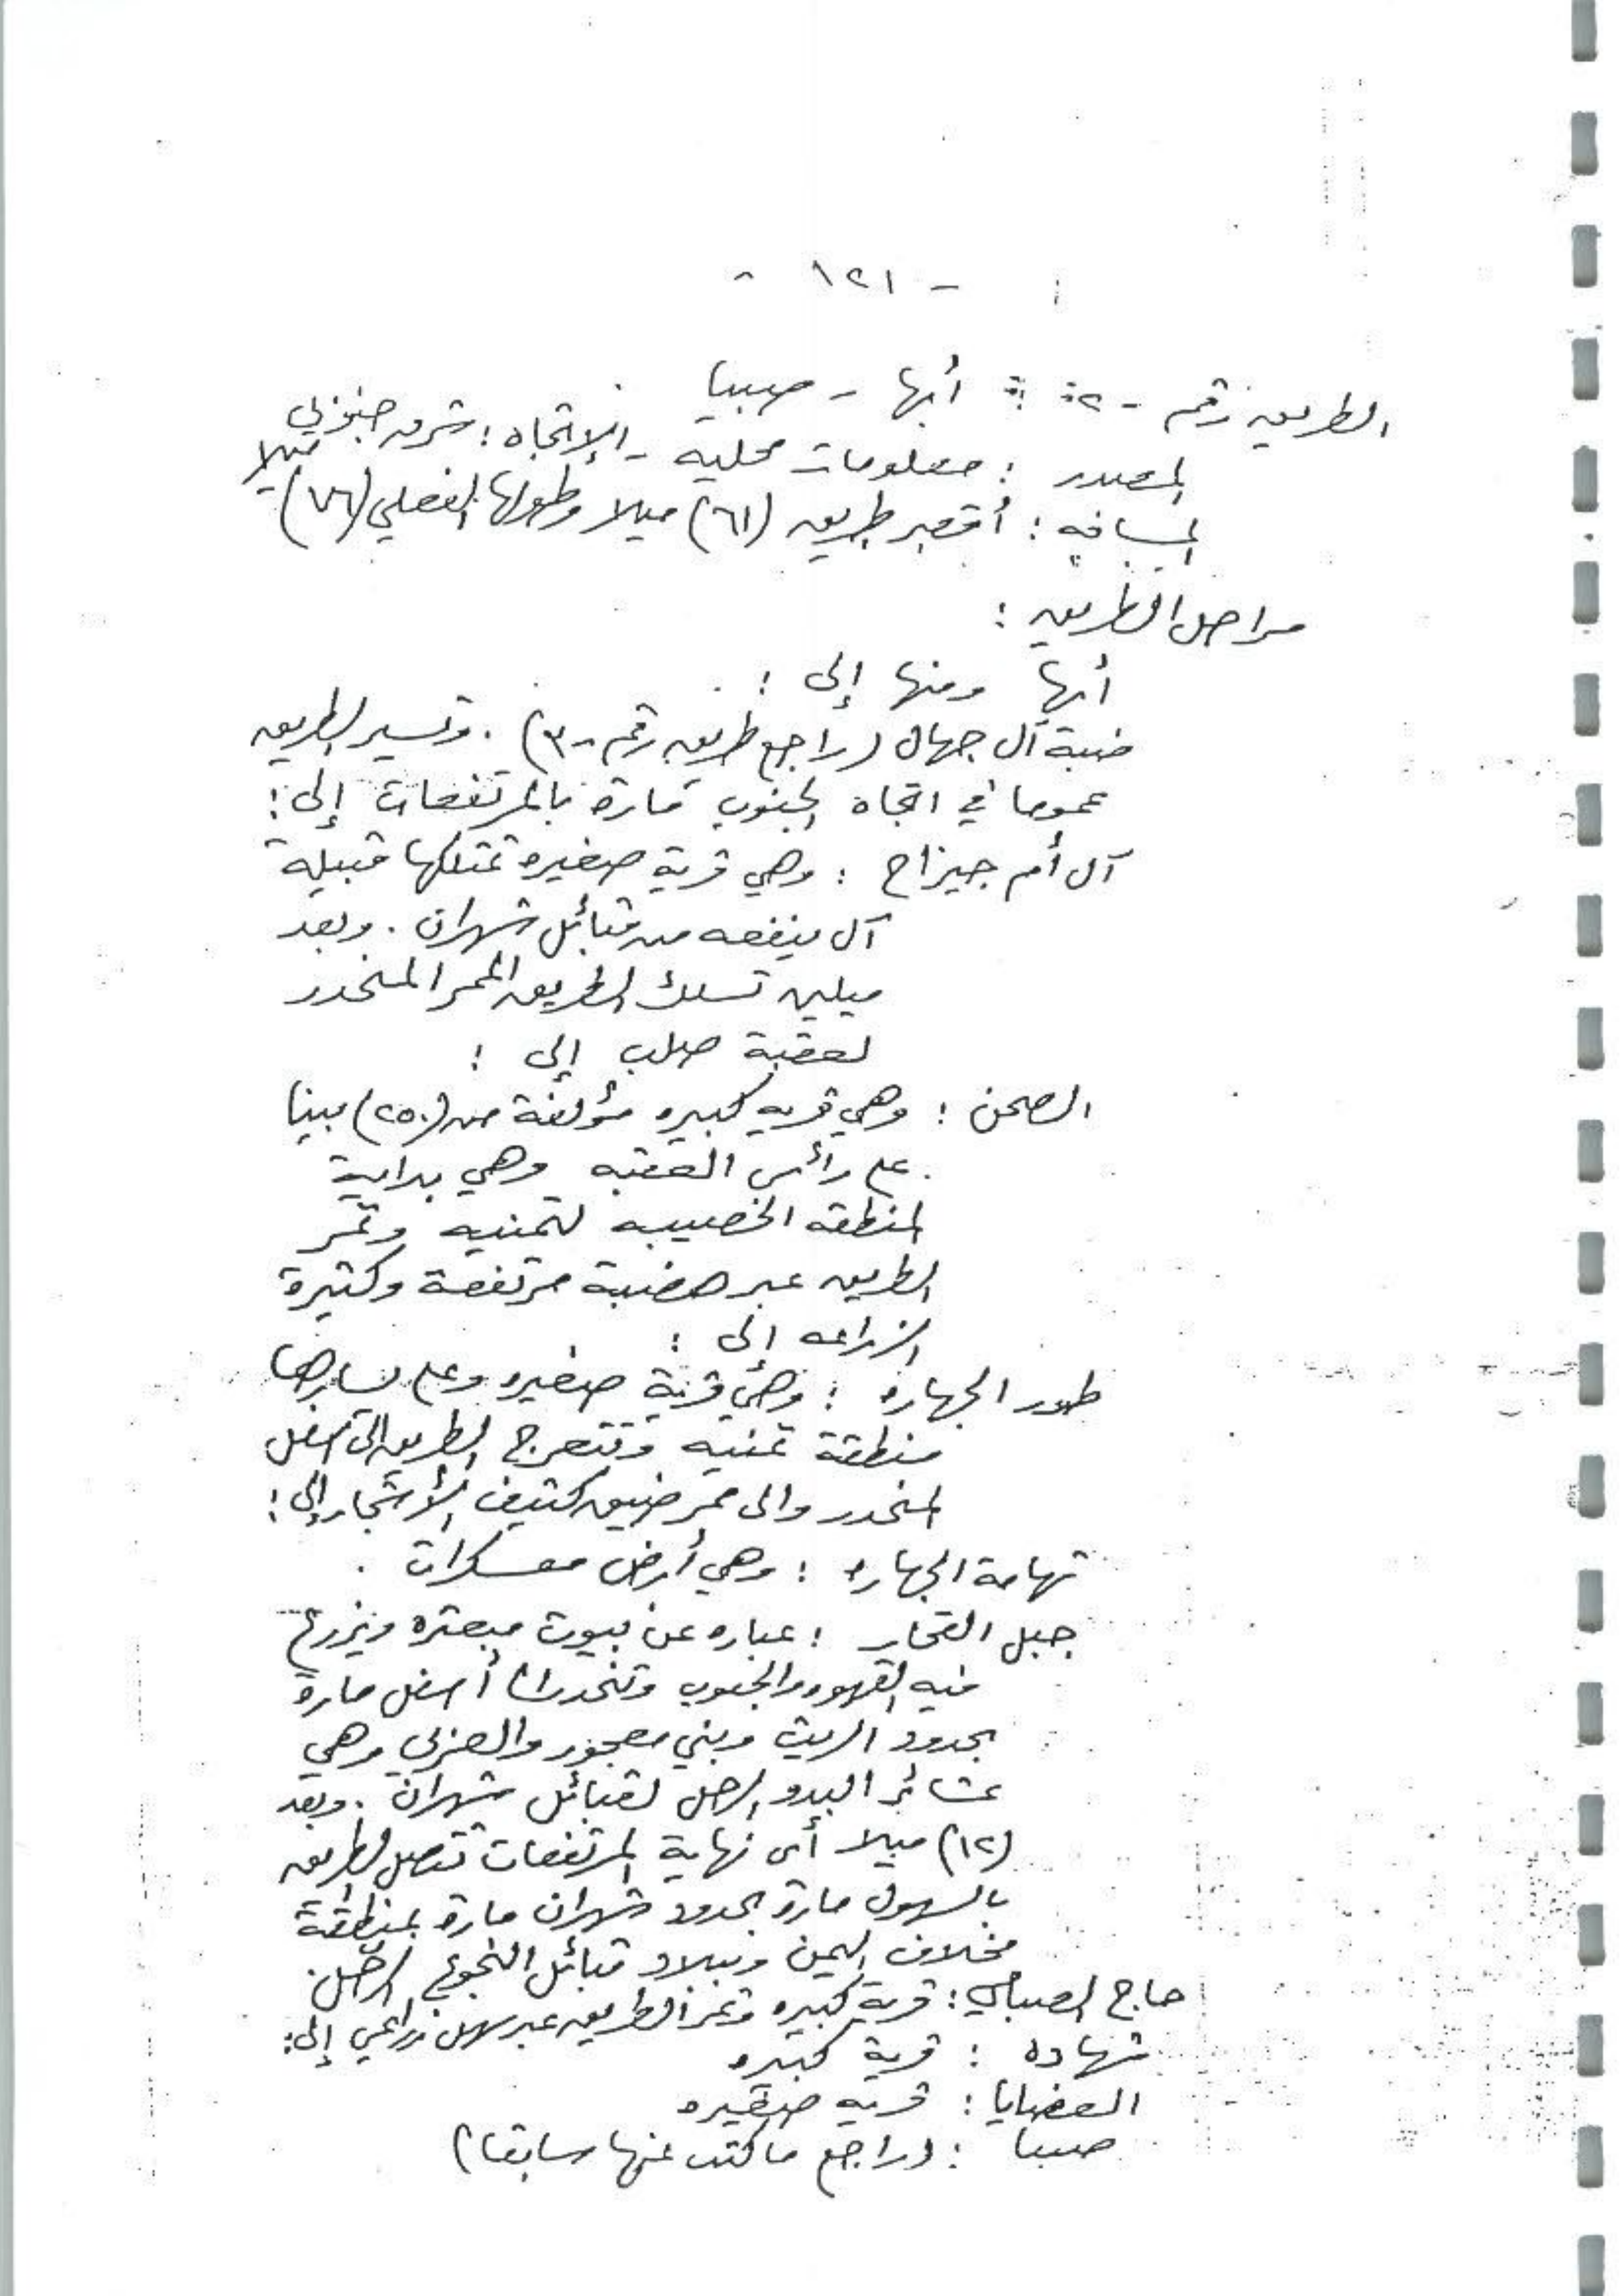 - ١٢١ -
الطريق رقم - ٢٠ : أبها - صبيا
المصدر : معلومات محلية - الإتجاه : شرق جنوبي
المسافه : أقصر طريق (٦١) ميلا وطولها الفعلي (٧٦) ميلا
مراحل الطريق :
أبها ومنها إلى :
ضبة آل جهال (راجع طريق رقم - ٣) . وتسير الطريق
عموما في اتجاه الجنوب مارة بالمرتفعات إلى :
آل أم جيزاح : وهي قرية صغيره تمتلكها قبيلة
آل ينفعه من قبائل شهران . وبعد
ميلين تسلك الطريق الممر المنحدر
لعقبة صلب إلى :
الصحن : وهي قريه كبيره مؤلفة من (٢٥٠) بيتا
على رأس العقبه وهي بداية
المنطقه الخصيبه لتمنيه وتمر
الطريق عبر هضبة مرتفعة وكثيرة
الزراعه إلى :
طور الجهاره : وهي قرية صغيره وعلى يسارها
منطقة تمنيه وتتعرج الطريق الى اسفل
المنحدر والى ممر ضيق كثيف الأشجار إلى :
تهامة الجهاره : وهي أرض معسكرات .
جبل القحار : عباره عن بيوت مبعثره ويزرع
فيه القهوه والحبوب وتنحدر الى أسفل مارة
بحدود الريث وبني معجور والعزبي وهي
عشائر البدو الرحل لقبائل شهران . وبعد
(١٢) ميلا أي نهاية المرتفعات تتصل الطريق
بالسهول مارة بحدود شهران مارة بمنطقة
مخلاف اليمن وببلاد قبائل النجوع الرحل .
حاج الصبالي : قرية كبيره وتمر الطريق عبر سهل زراعي إلى :
شهاده : قرية كبيره
العضايا : قريه صغيره
صبيا : (راجع ما كتب عنها سابقا)